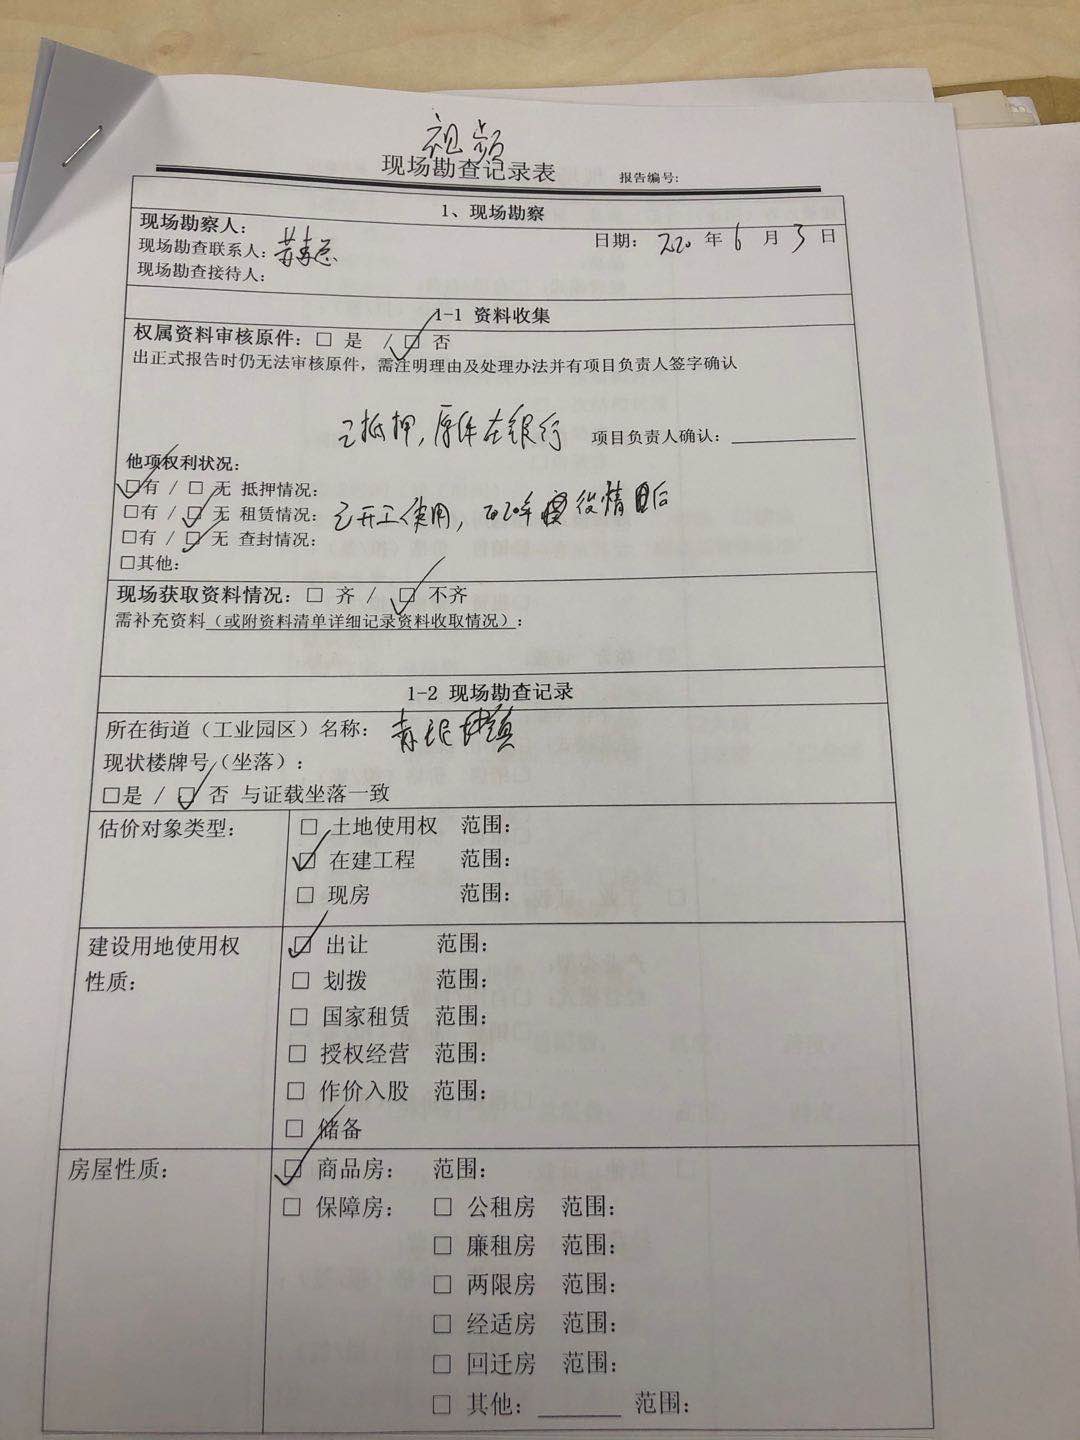 视频
现场勘查记录表 报告编号:
1、现场勘察
现场勘察人:
日期: 2020 年 6 月 3 日
现场勘查联系人:
现场勘查接待人:
1-1 资料收集
权属资料审核原件: □ 是 / ☑ 否
出正式报告时仍无法审核原件，需注明理由及处理办法并有项目负责人签字确认
已抵押，原件在银行 项目负责人确认:
他项权利状况:
☑有 / □ 无 抵押情况:
□有 / ☑ 无 租赁情况: 已开工使用，2020年 疫情 后
□有 / ☑ 无 查封情况:
□其他:
现场获取资料情况: □ 齐 / ☑ 不齐
需补充资料(或附资料清单详细记录资料收取情况):
1-2 现场勘查记录
所在街道（工业园区）名称: 镇
现状楼牌号（坐落）:
□是 / ☑ 否 与证载坐落一致
估价对象类型: □ 土地使用权 范围:
☑ 在建工程 范围:
□ 现房 范围:
建设用地使用权 ☑ 出让 范围:
性质: □ 划拨 范围:
□ 国家租赁 范围:
□ 授权经营 范围:
□ 作价入股 范围:
□ 储备
房屋性质: ☑ 商品房: 范围:
□ 保障房: □ 公租房 范围:
□ 廉租房 范围:
□ 两限房 范围:
□ 经适房 范围:
□ 回迁房 范围:
□ 其他: 范围: